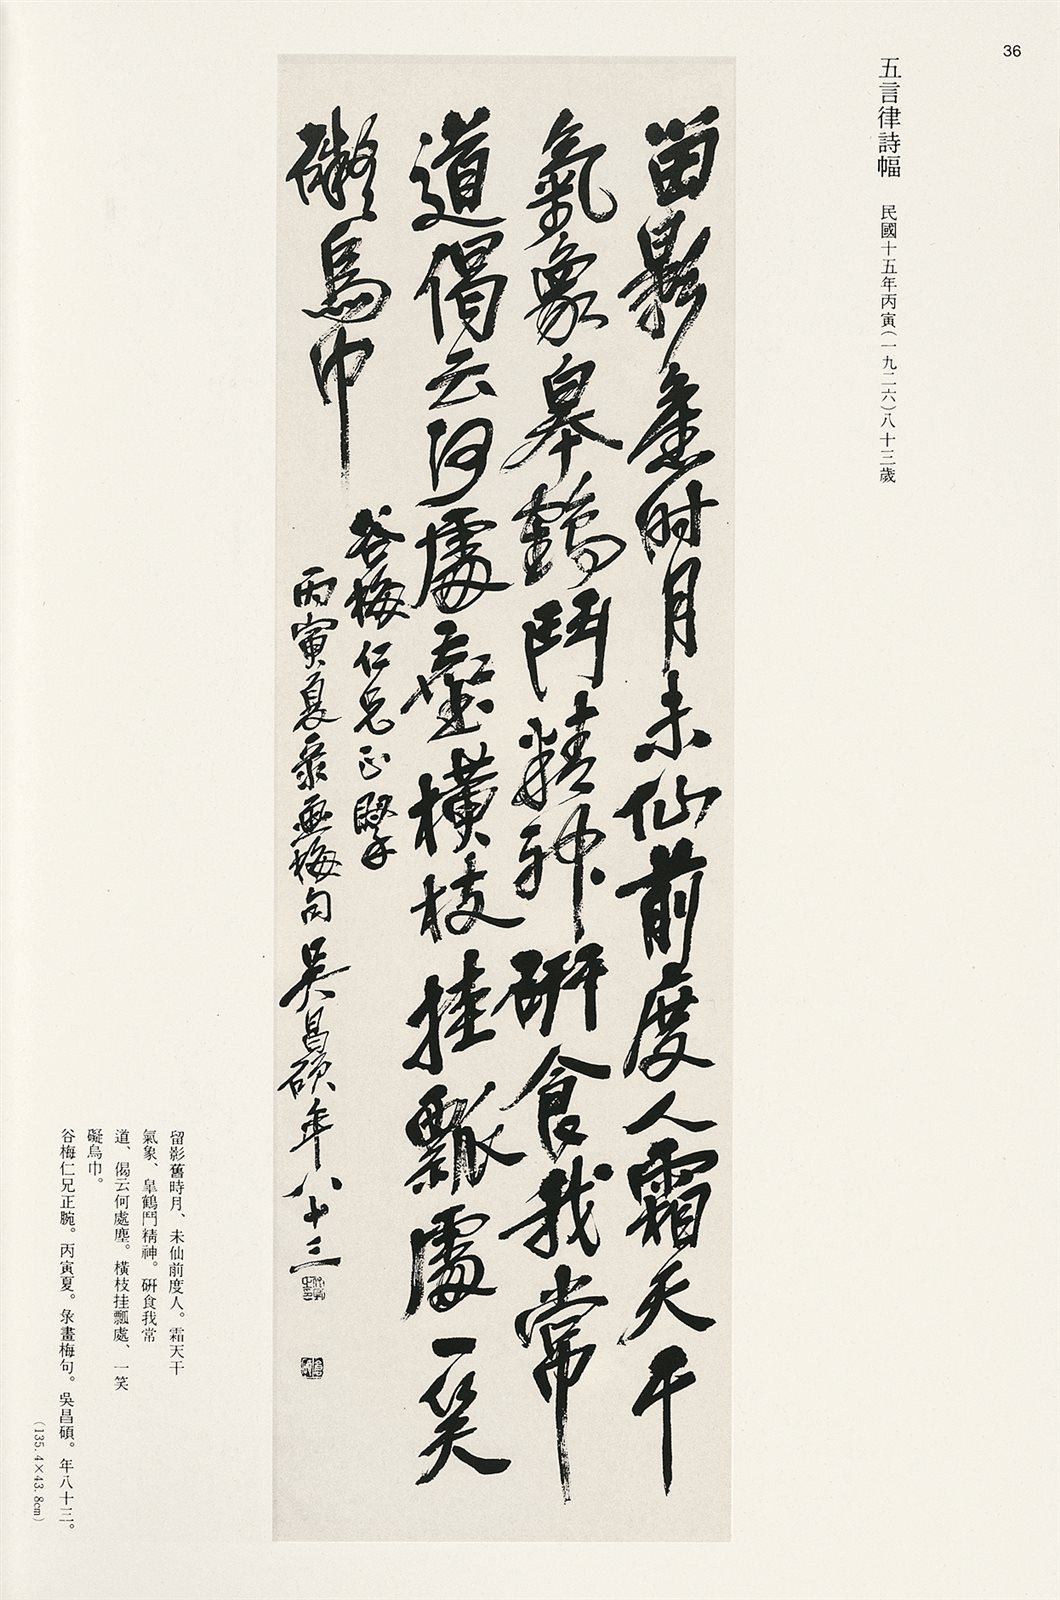 36
五言律詩幅　民國十五年丙寅(一九二六)八十三歲
留影舊时月未仙前度人霜天干
氣象皋鶴鬥精神硏食我常
道偈云何處塵橫枝挂瓢處一笑
礙烏巾
谷梅仁兄正腕
丙寅夏彔畫梅句吴昌碩年八十三
留影舊時月、未仙前度人。霜天干
氣象、皐鶴鬥精神。硏食我常
道、偈云何處塵。橫枝挂瓢處、一笑
礙烏巾。
谷梅仁兄正腕。丙寅夏。彔畫梅句。吳昌碩。年八十三。
(135.4×43.8cm)